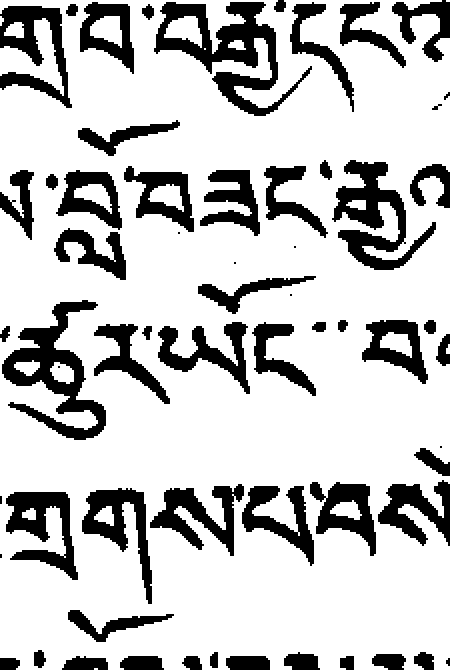 གྲ་བ་བརྒྱ་དང
བློ་བཟང་རྒྱ
ཚུར་ཡོང་་བ་
གྲགས་པ་བསོ